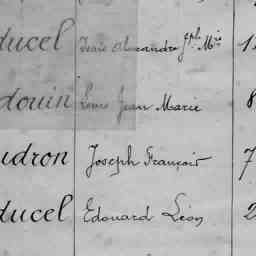 ducel Jean Alexandre Jph Mie 1
douin Louis Jean Marie 8
udron Joseph François 7
ducel Edouard Léon 2